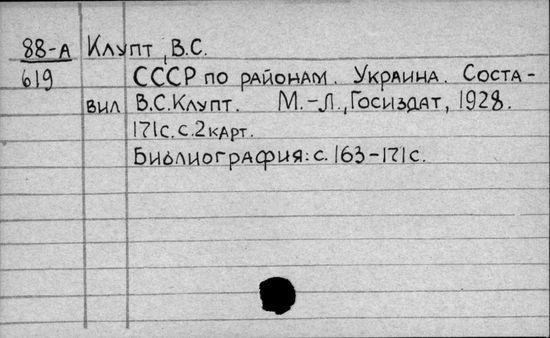 88-А Клупт, В.С.
619 СССР по районам. Украина. Соста-
вил В.С.Клупт. М.-Л., Госиздат, 1928.
171с. с.2карт.
Библиография: с. 163-171с.